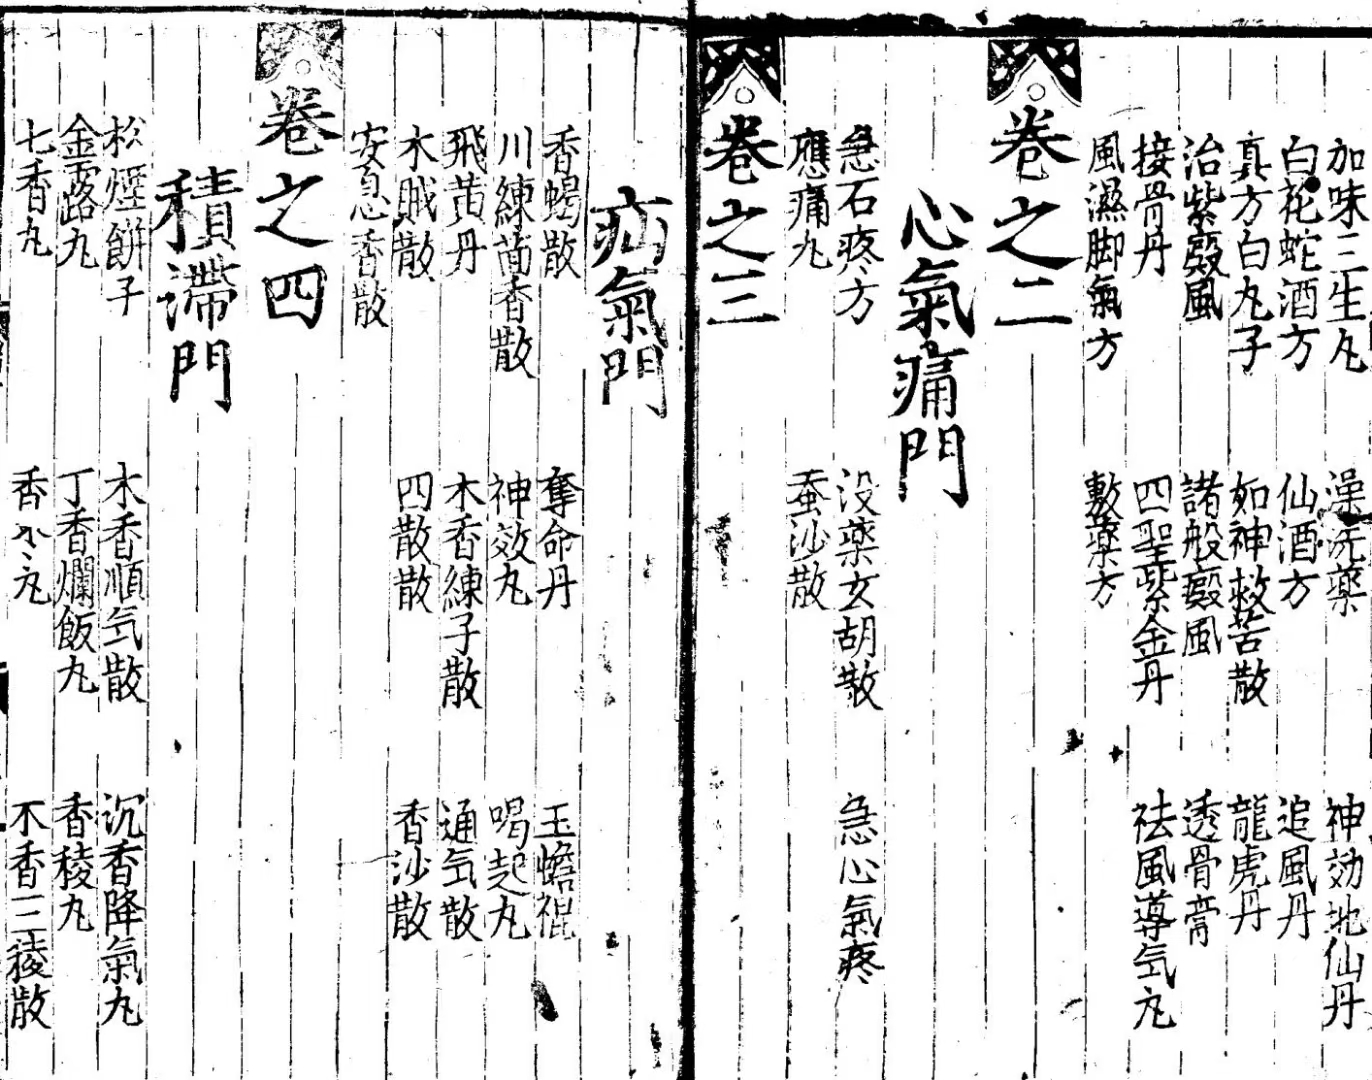 加味三生丸 澡洗藥 神効地仙丹
白花蛇酒方 仙酒方 追風丹
真方白丸子 如神救苦散 龍虎丹
治紫癜風 諸般癜風 透骨膏
接骨丹 四聖紫金丹 祛風導气丸
風濕脚氣方 敷藥方
卷之二
心氣痛門
急石疼方 没藥玄胡散 急心氣疼
應痛丸 蚕沙散
卷之三
疝氣門
香蝎散 奪命丹 玉蟾裩
川練茴香散 神效丸 喝起丸
飛黄丹 木香練子散 通气散
木賊散 四散散 香沙散
安息香散
卷之四
積滯門
松煙餅子 木香順气散 沉香降氣丸
金露丸 丁香爛飯丸 香稜丸
七香丸 香丸 不香三稜散